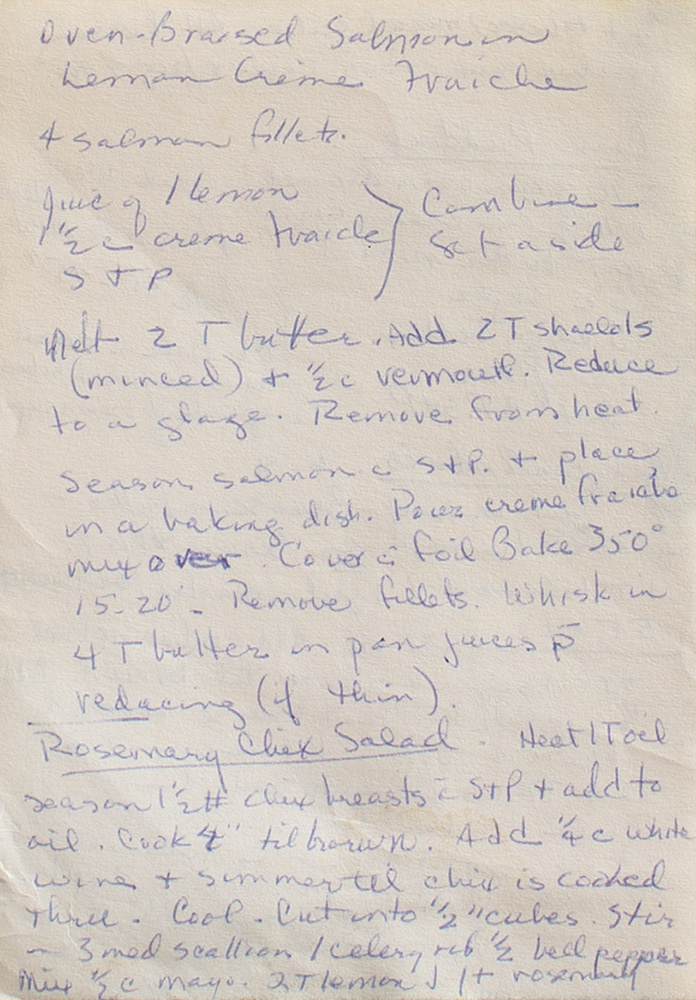 Oven-Braised Salmon in
Lemon Crème Fraiche
4 salmon fillets.
Juice of 1 lemon
1 ½ c creme fraiche } Combine -
S + P Set aside
Melt 2 T butter. Add 2 T shallots
(minced) + ½ c vermouth. Reduce
to a glaze. Remove from heat.
Season salmon c̄ S+P. + place
in a baking dish. Pour creme fraiche
mix over. Cover c̄ foil Bake 350°
15-20' - Remove fillets. Whisk in
4 T butter in pan juices p̄
reducing (if thin).
Rosemary Chix Salad. Heat 1 T oil
season 1 ½ # chix breasts c̄ S+P + add to
oil. Cook 4" til brown. Add ¼ c white
wine + simmer til chix is cooked
thru. Cool. Cut into ½" cubes. Stir
- 3 med scallion 1 celery rib ½ bell pepper
Mix ½ c mayo. 2 T lemon J 1 t rosemary